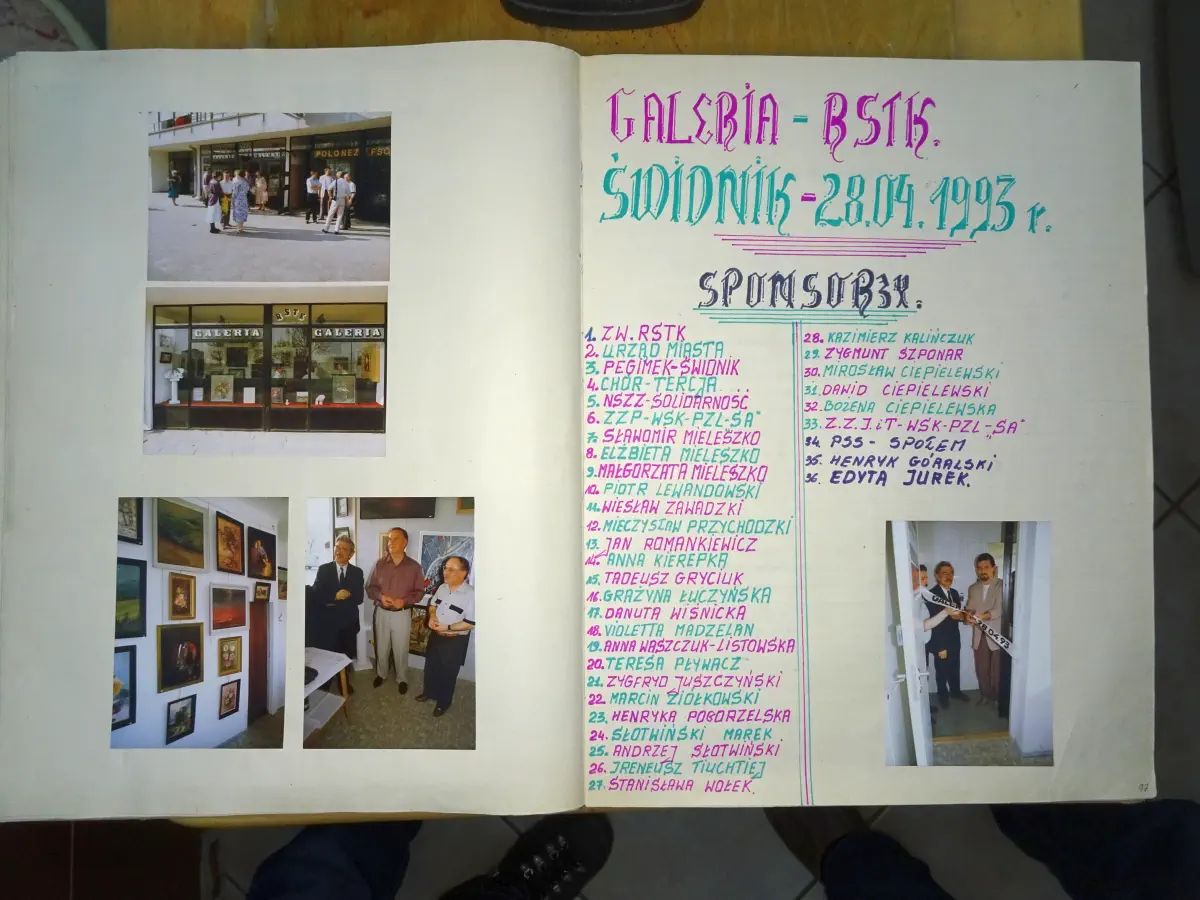 POLONEZ FSO
RSTK
GALERIA GALERIA
GALERIA - RSTK.
ŚWIDNIK - 28.04.1993 r.
SPONSORZY.
1. ZW. RSTK
2. URZĄD MIASTA
3. PEGIMEK-ŚWIDNIK
4. CHÓR-TERCJA
5. NSZZ-SOLIDARNOŚĆ
6. ZZP-WSK-PZL-SA"
7. SŁAWOMIR MIELESZKO
8. ELŻBIETA MIELESZKO
9. MAŁGORZATA MIELESZKO
10. PIOTR LEWANDOWSKI
11. WIESŁAW ZAWADZKI
12. MIECZYSŁAW PRZYCHODZKI
13. JAN ROMANKIEWICZ
14. ANNA KIEREPKA
15. TADEUSZ GRYCIUK
16. GRAŻYNA ŁUCZYŃSKA
17. DANUTA WIŚNICKA
18. VIOLETTA MADZELAN
19. ANNA WASZCZUK-LISTOWSKA
20. TERESA PŁYWACZ
21. ZYGFRYD JUSZCZYŃSKI
22. MARCIN ZIÓŁKOWSKI
23. HENRYKA POGORZELSKA
24. SŁOTWIŃSKI MAREK
25. ANDRZEJ SŁOTWIŃSKI
26. IRENEUSZ TIUCHTIEJ
27. STANISŁAWA WOŁEK.
28. KAZIMIERZ KALIŃCZUK
29. ZYGMUNT SZPONAR
30. MIROSŁAW CIEPIELEWSKI
31. DAWID CIEPIELEWSKI
32. BOŻENA CIEPIELEWSKA
33. Z.Z.I.iT-WSK-PZL-„SA"
34. PSS - SPOŁEM
35. HENRYK GÓRALSKI
36. EDYTA JUREK.
28.04.93
97